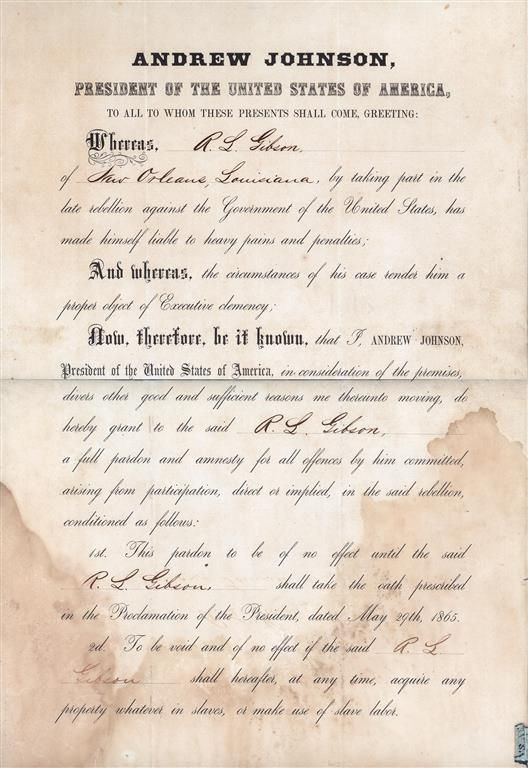 ANDREW JOHNSON,
PRESIDENT OF THE UNITED STATES OF AMERICA,
TO ALL TO WHOM THESE PRESENTS SHALL COME, GREETING:
Whereas, R. L. Gibson,
of New Orleans, Louisiana, by taking part in the
late rebellion against the Government of the United States, has
made himself liable to heavy pains and penalties;
And whereas, the circumstances of his case render him a
proper object of Executive clemency;
Now, therefore, be it known, that I, ANDREW JOHNSON,
President of the United States of America, in consideration of the premises,
divers other good and sufficient reasons me thereunto moving, do
hereby grant to the said R. L. Gibson,
a full pardon and amnesty for all offences by him committed,
arising from participation, direct or implied, in the said rebellion,
conditioned as follows:
1st. This pardon to be of no effect until the said
R. L. Gibson, shall take the oath prescribed
in the Proclamation of the President, dated May 29th, 1865.
2d. To be void and of no effect if the said R. L.
Gibson shall hereafter, at any time, acquire any
property whatever in slaves, or make use of slave labor.